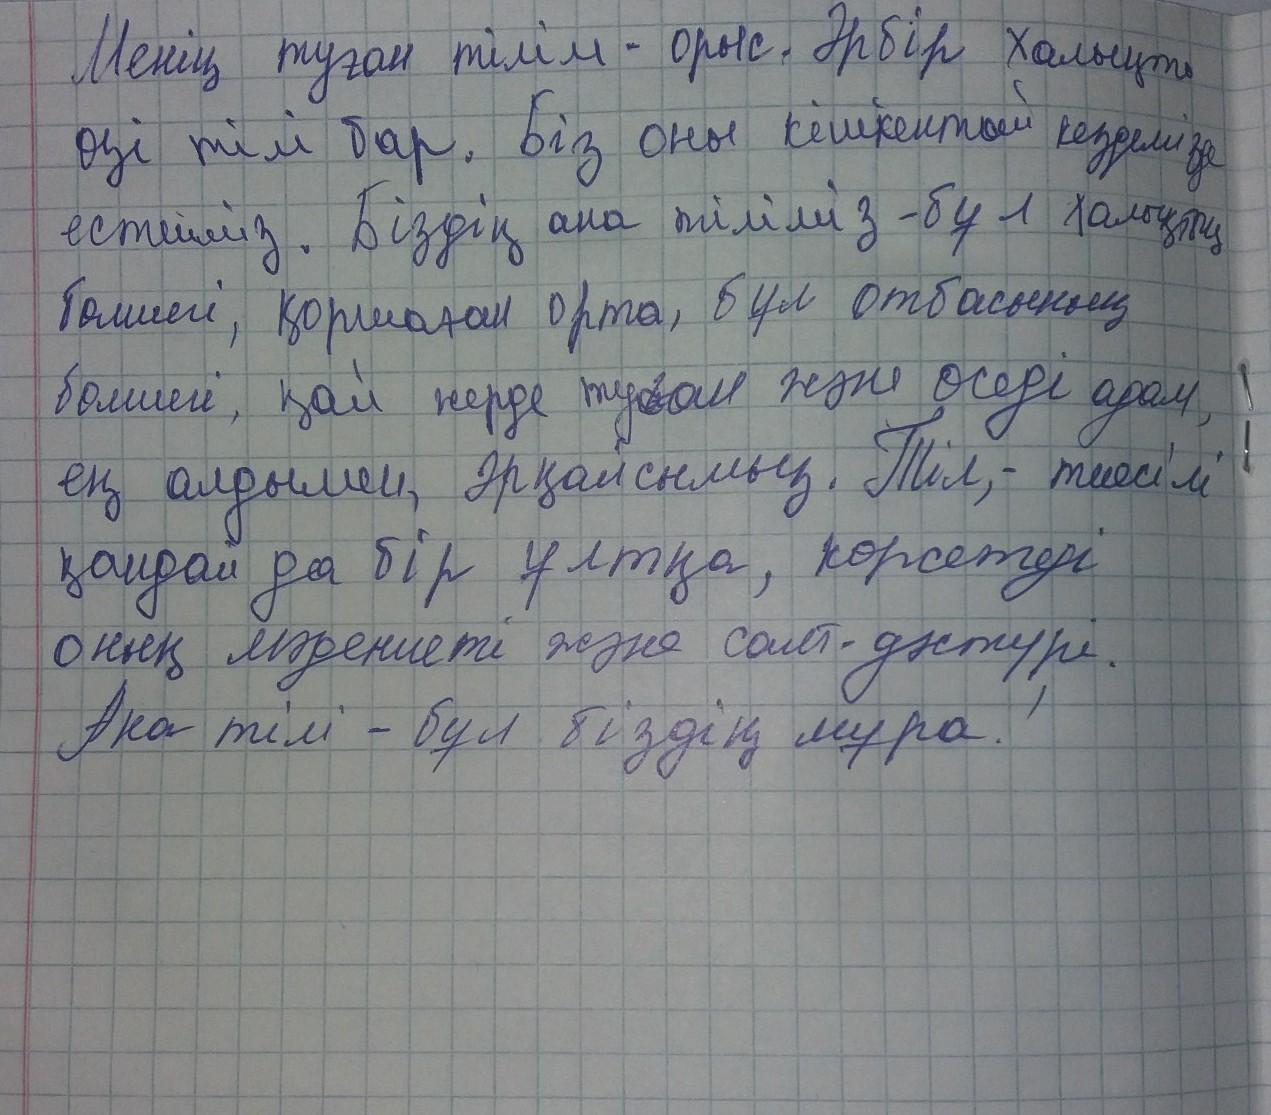 Менің туған тілім - орыс. Әрбір халықта
өзі тілі бар. Біз оны кішкентай кезделізде
естиміз. Біздің ана тіліміз - бұл халықтың
бөлшегі, қоршаған орта, бұл отбасының
бөлшегі, қай жерде туған және өседі адам,
ең алдымен, әрқайсымыз. Тіл, - тиесілі
қандай да бір ұлтқа, көрсетеді
оның мәдениеті және салт-дәстүрі.
Ана тілі - бұл біздің мұра!